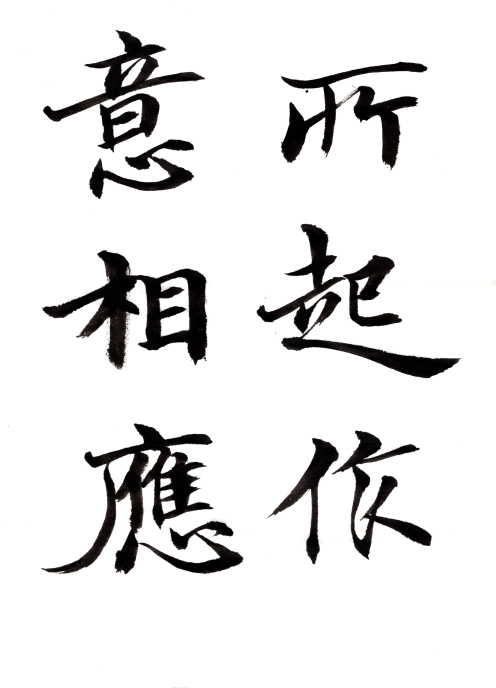 所起作
意相應